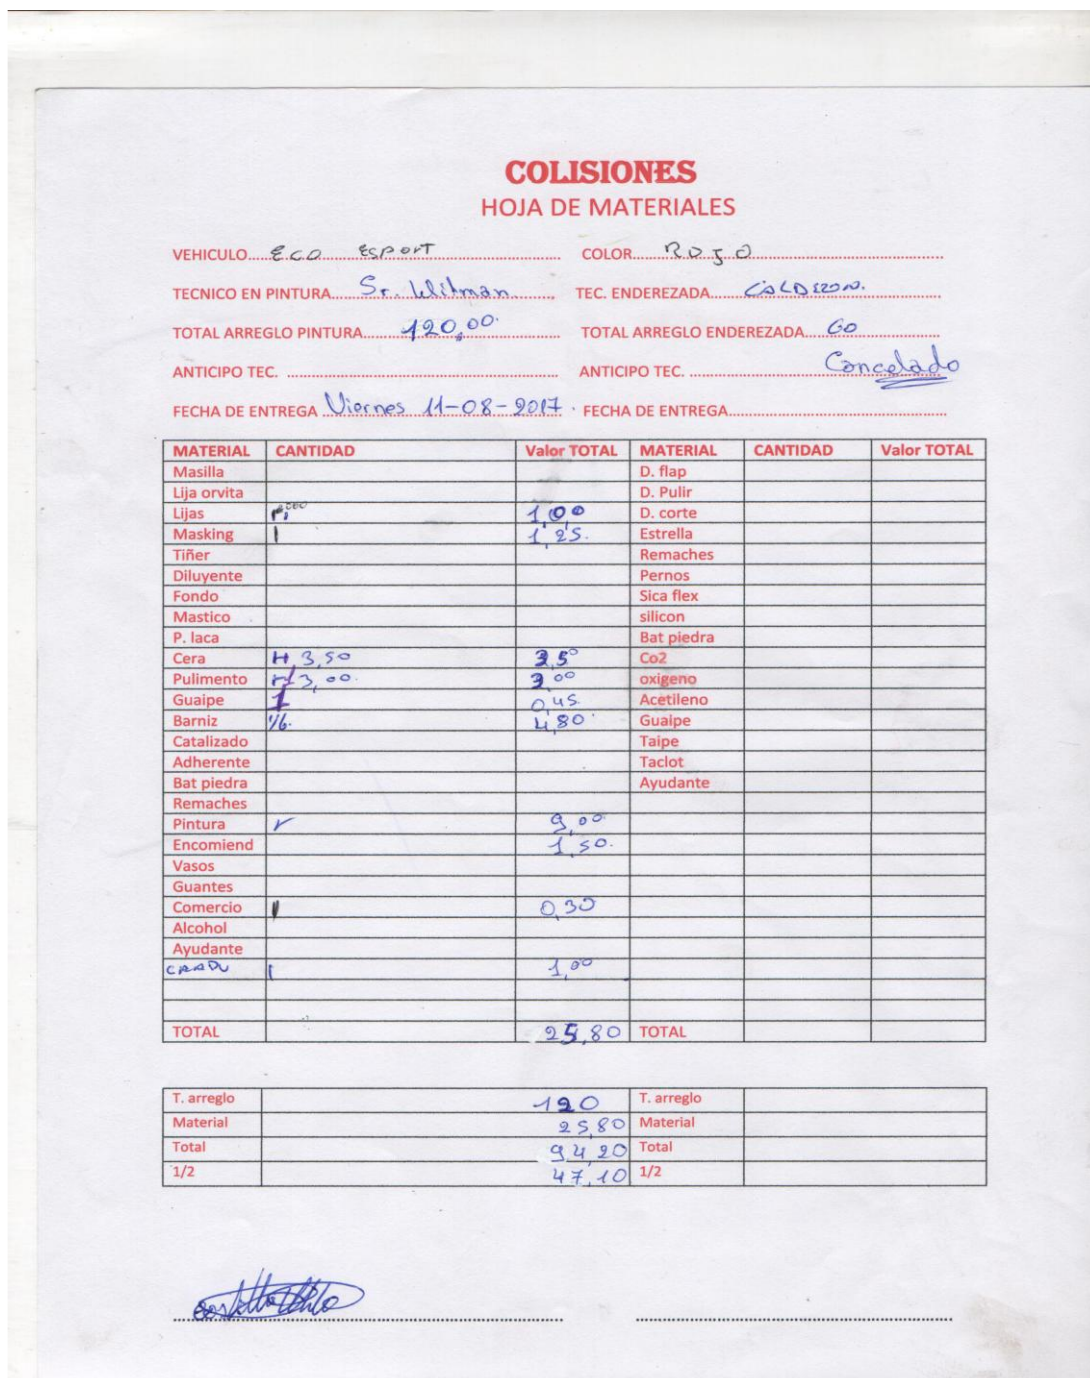 COLISIONES
HOJA DE MATERIALES
VEHICULO..... Eco Esport ..... COLOR..... Rojo .....
TECNICO EN PINTURA..... Sr. Witman ..... TEC. ENDEREZADA..... CALDERON. .....
TOTAL ARREGLO PINTURA..... 120,00. ..... TOTAL ARREGLO ENDEREZADA..... 60 .....
ANTICIPO TEC. ..... ANTICIPO TEC. ..... Cancelado
FECHA DE ENTREGA Viernes 11-08-2017. FECHA DE ENTREGA.....
MATERIAL CANTIDAD Valor TOTAL MATERIAL CANTIDAD Valor TOTAL
Masilla D. flap
Lija orvita D. Pulir
Lijas 1,00 D. corte
Masking 1 1,25. Estrella
Tiñer Remaches
Diluyente Pernos
Fondo Sica flex
Mastico silicon
P. laca Bat piedra
Cera 3,50 3,50 Co2
Pulimento 3,00. 3,00 oxigeno
Guaipe 1 0,45. Acetileno
Barniz 1/6. 4,80. Guaipe
Catalizado Taipe
Adherente Taclot
Bat piedra Ayudante
Remaches
Pintura 9,00
Encomiend 1,50.
Vasos
Guantes
Comercio 1 0,30
Alcohol
Ayudante
1 1,00
TOTAL 25,80 TOTAL
T. arreglo 120 T. arreglo
Material 25,80 Material
Total 94,20 Total
1/2 47,10 1/2